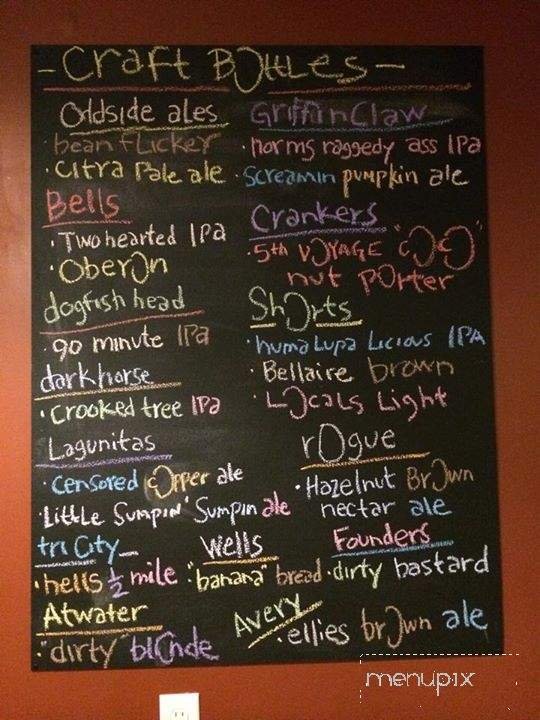 - Craft Bottles -
Oddside ales
bean flicker
· Citra Pale ale
Bells
· Two hearted IPa
· Oberon
dogfish head
· 90 minute IPa
dark horse
· Crooked tree IPa
Lagunitas
· Censored copper ale
· Little Sumpin' Sumpin ale
tri City
· hells 1/2 mile
Atwater
· "dirty" blonde
Griffin Claw
· norms raggedy ass IPa
· Screamin pumpkin ale
Crankers
· 5th VOYAGE "COCO"
nut porter
Shorts
· huma Lupa Licious IPA
· Bellaire brown
· Locals Light
rogue
· Hazelnut Brown
nectar ale
Wells
· "banana" bread
Founders
· dirty bastard
Avery
· ellies brown ale
menupix